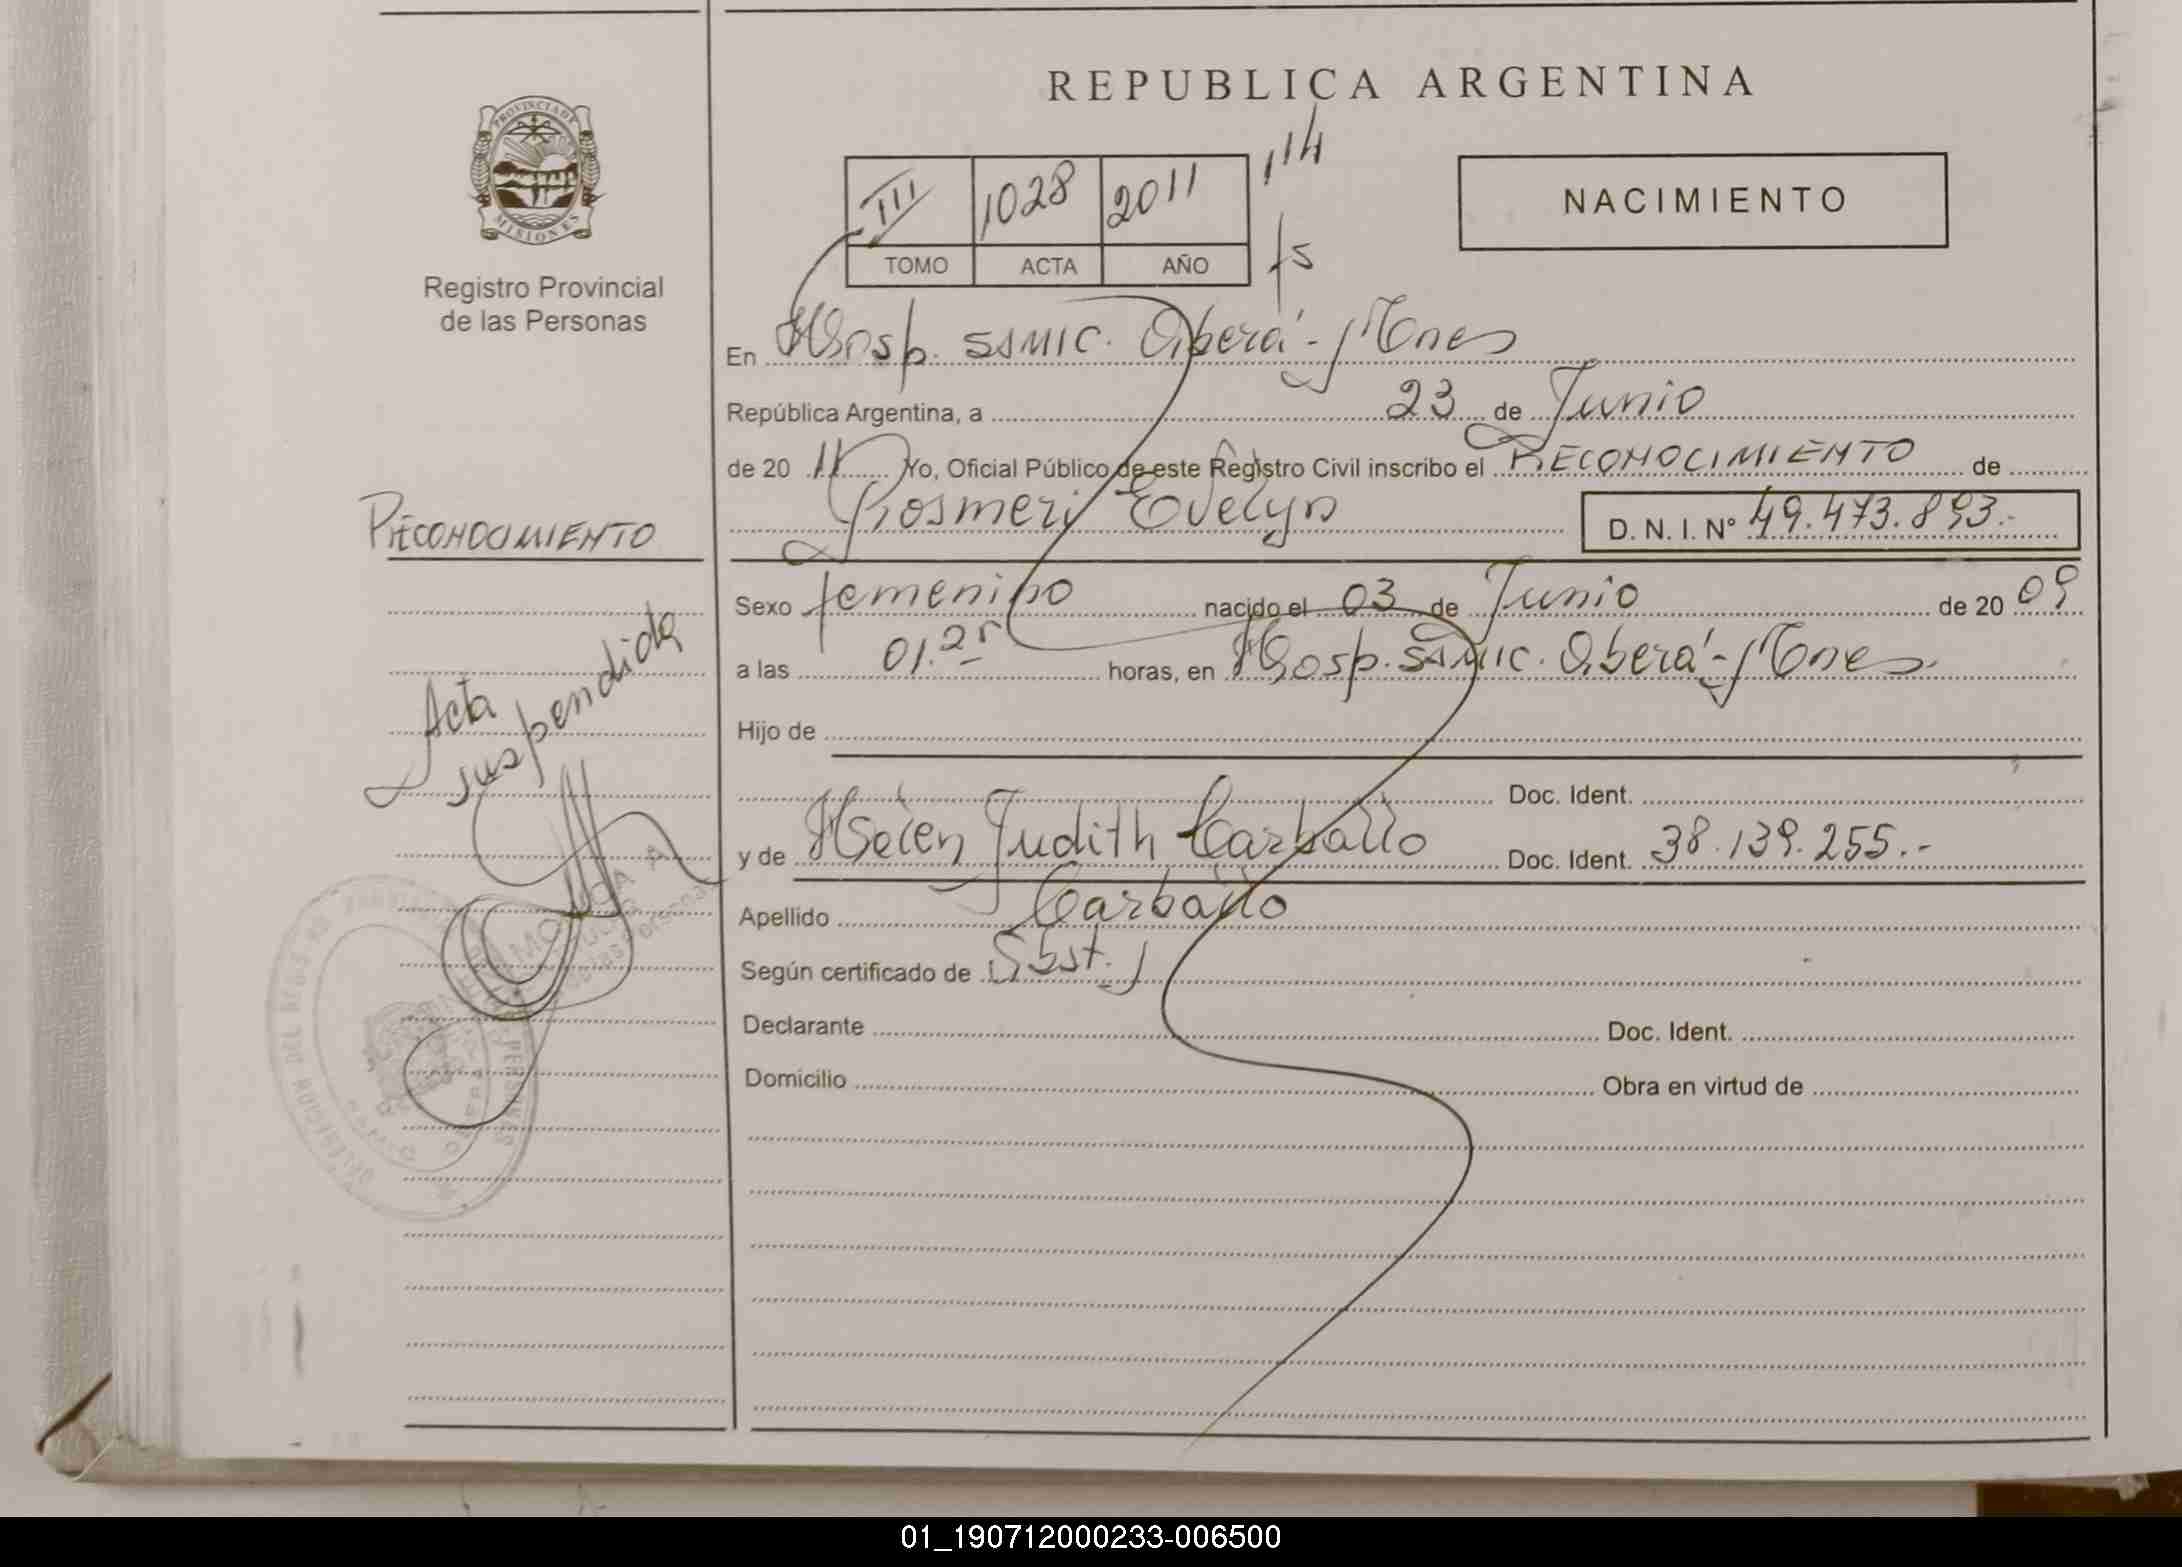 REPUBLICA ARGENTINA
PROVINCIA DE
MISIONES
Registro Provincial
de las Personas
III 1028 2011 114
TOMO ACTA AÑO fs
NACIMIENTO
En Hosp. SAMIC. Oberá - Mnes
República Argentina, a 23 de Junio
de 20 11 Yo, Oficial Público de este Registro Civil inscribo el RECONOCIMIENTO de
Rosmeri Evelyn D. N. I. Nº 49.473.893.-
RECONOCIMIENTO
Sexo femenino nacido el 03 de Junio de 20 09
a las 01.25 horas, en Hosp. SAMIC. Oberá - Mnes.
Acta
suspendida
Hijo de
Doc. Ident.
y de Helen Judith Carballo Doc. Ident. 38.139.255.-
Apellido Carballo
Según certificado de
Declarante Doc. Ident.
Domicilio Obra en virtud de
01_190712000233-006500